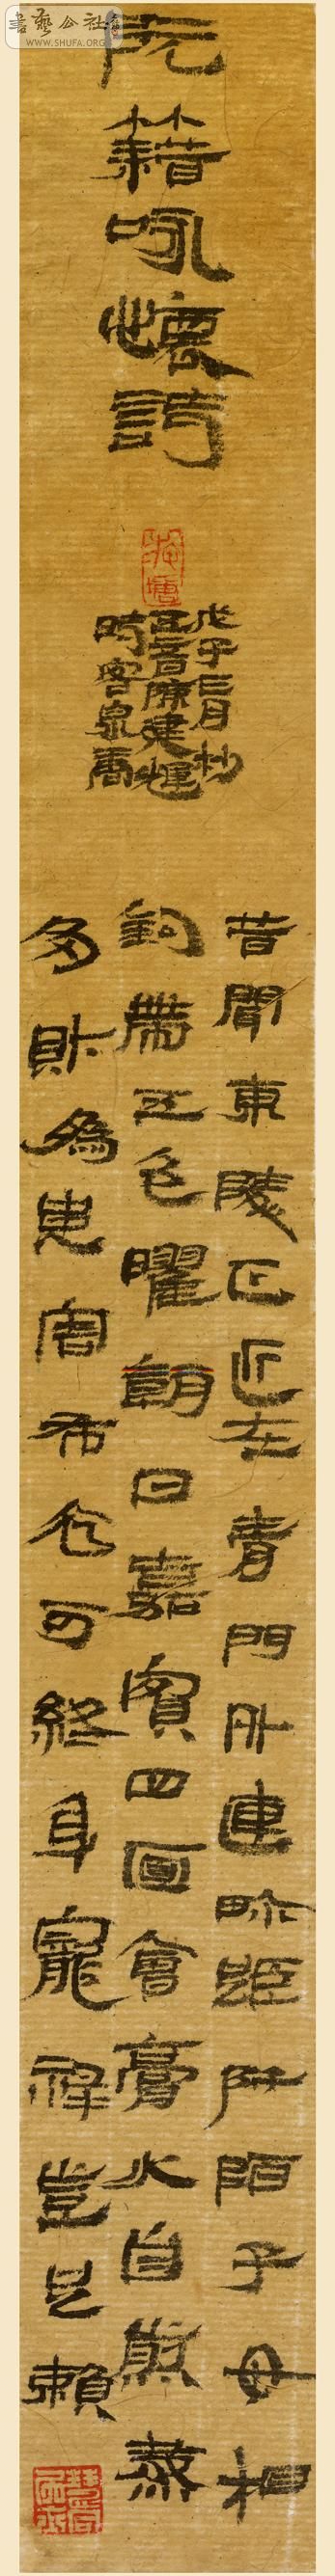 書藝公社
WWW.SHUFA.ORG
阮籍咏懷詩
戊子三月杪
時客
昔聞東陵瓜近在青門外連畛距阡陌子母相
鉤帶五色曜朝日嘉賓四面會膏火自煎熬
多財為患害布衣可終身寵祿豈足賴